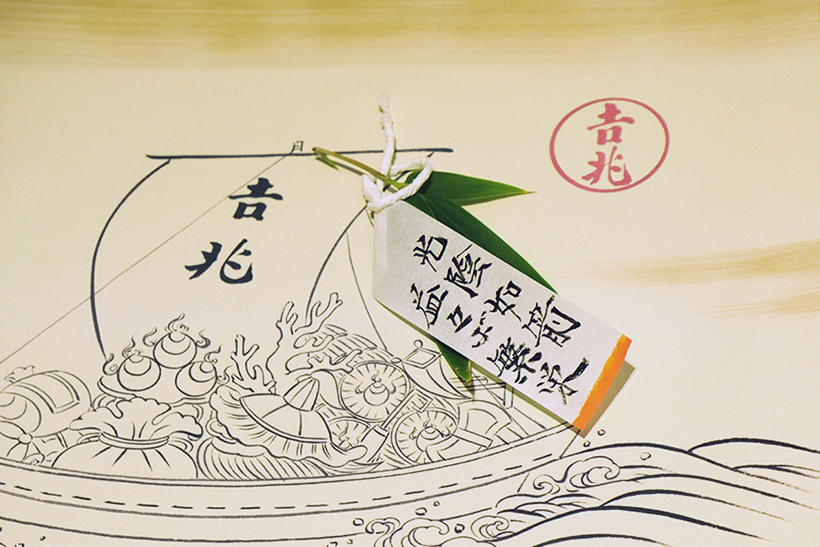 𠮷兆
𠮷兆
光陰如箭
益々ご繁栄